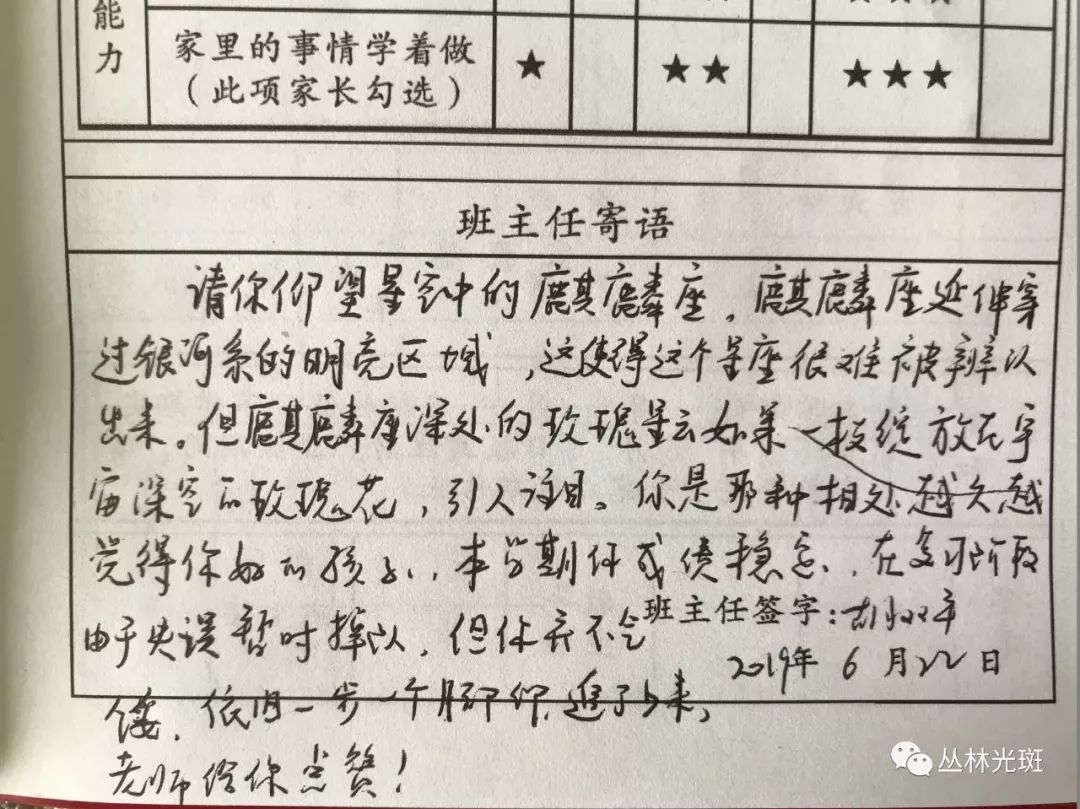 能力
家里的事情学着做 ★ ★★ ★★★
（此项家长勾选）
班主任寄语
请你仰望星空中的麒麟座。麒麟座延伸穿
过银河系的明亮区域，这使得这个星座很难被辨认
出来。但麒麟座深处的玫瑰星云如果一枝绽放在宇
宙深空的玫瑰花，引人注目。你是那种相处越久越
觉得你好的孩子，本学期你成绩稳定，在复习阶段
由于失误暂时掉队，但你并不气
班主任签字：胡
2019年 6 月22日
馁，依旧一步一个脚印，追了上来，
老师给你点赞！
丛林光斑